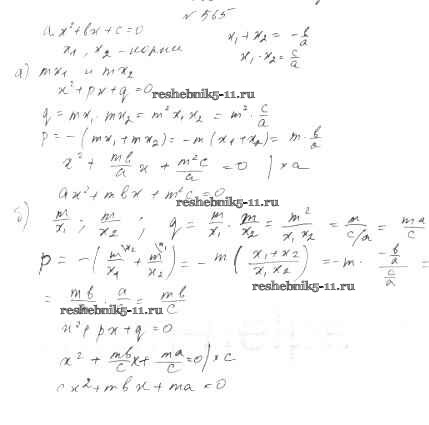 № 565
ax² + bx + c = 0
x₁ + x₂ = -b/a
x₁, x₂ - корни
x₁ · x₂ = c/a
а) mx₁ и mx₂
x² + px + q = 0
reshebnik5-11.ru
q = mx₁ · mx₂ = m² x₁x₂ = m² · c/a
p = -(mx₁ + mx₂) = -m(x₁ + x₂) = m · b/a
x² + mb/a x + m²c/a = 0 | × a
ax² + mbx + m²c = 0
reshebnik5-11.ru
б) m/x₁ ; m/x₂ ; q = m/x₁ · m/x₂ = m²/x₁x₂ = m/c/a = ma/c
p = -(m/x₁ + m/x₂) = -m(x₁ + x₂/x₁x₂) = -m · -b/a/c/a =
reshebnik5-11.ru
= mb/a · a/c = mb/c
reshebnik5-11.ru
x² + px + q = 0
x² + mb/c x + ma/c = 0 | × c
cx² + mbx + ma = 0